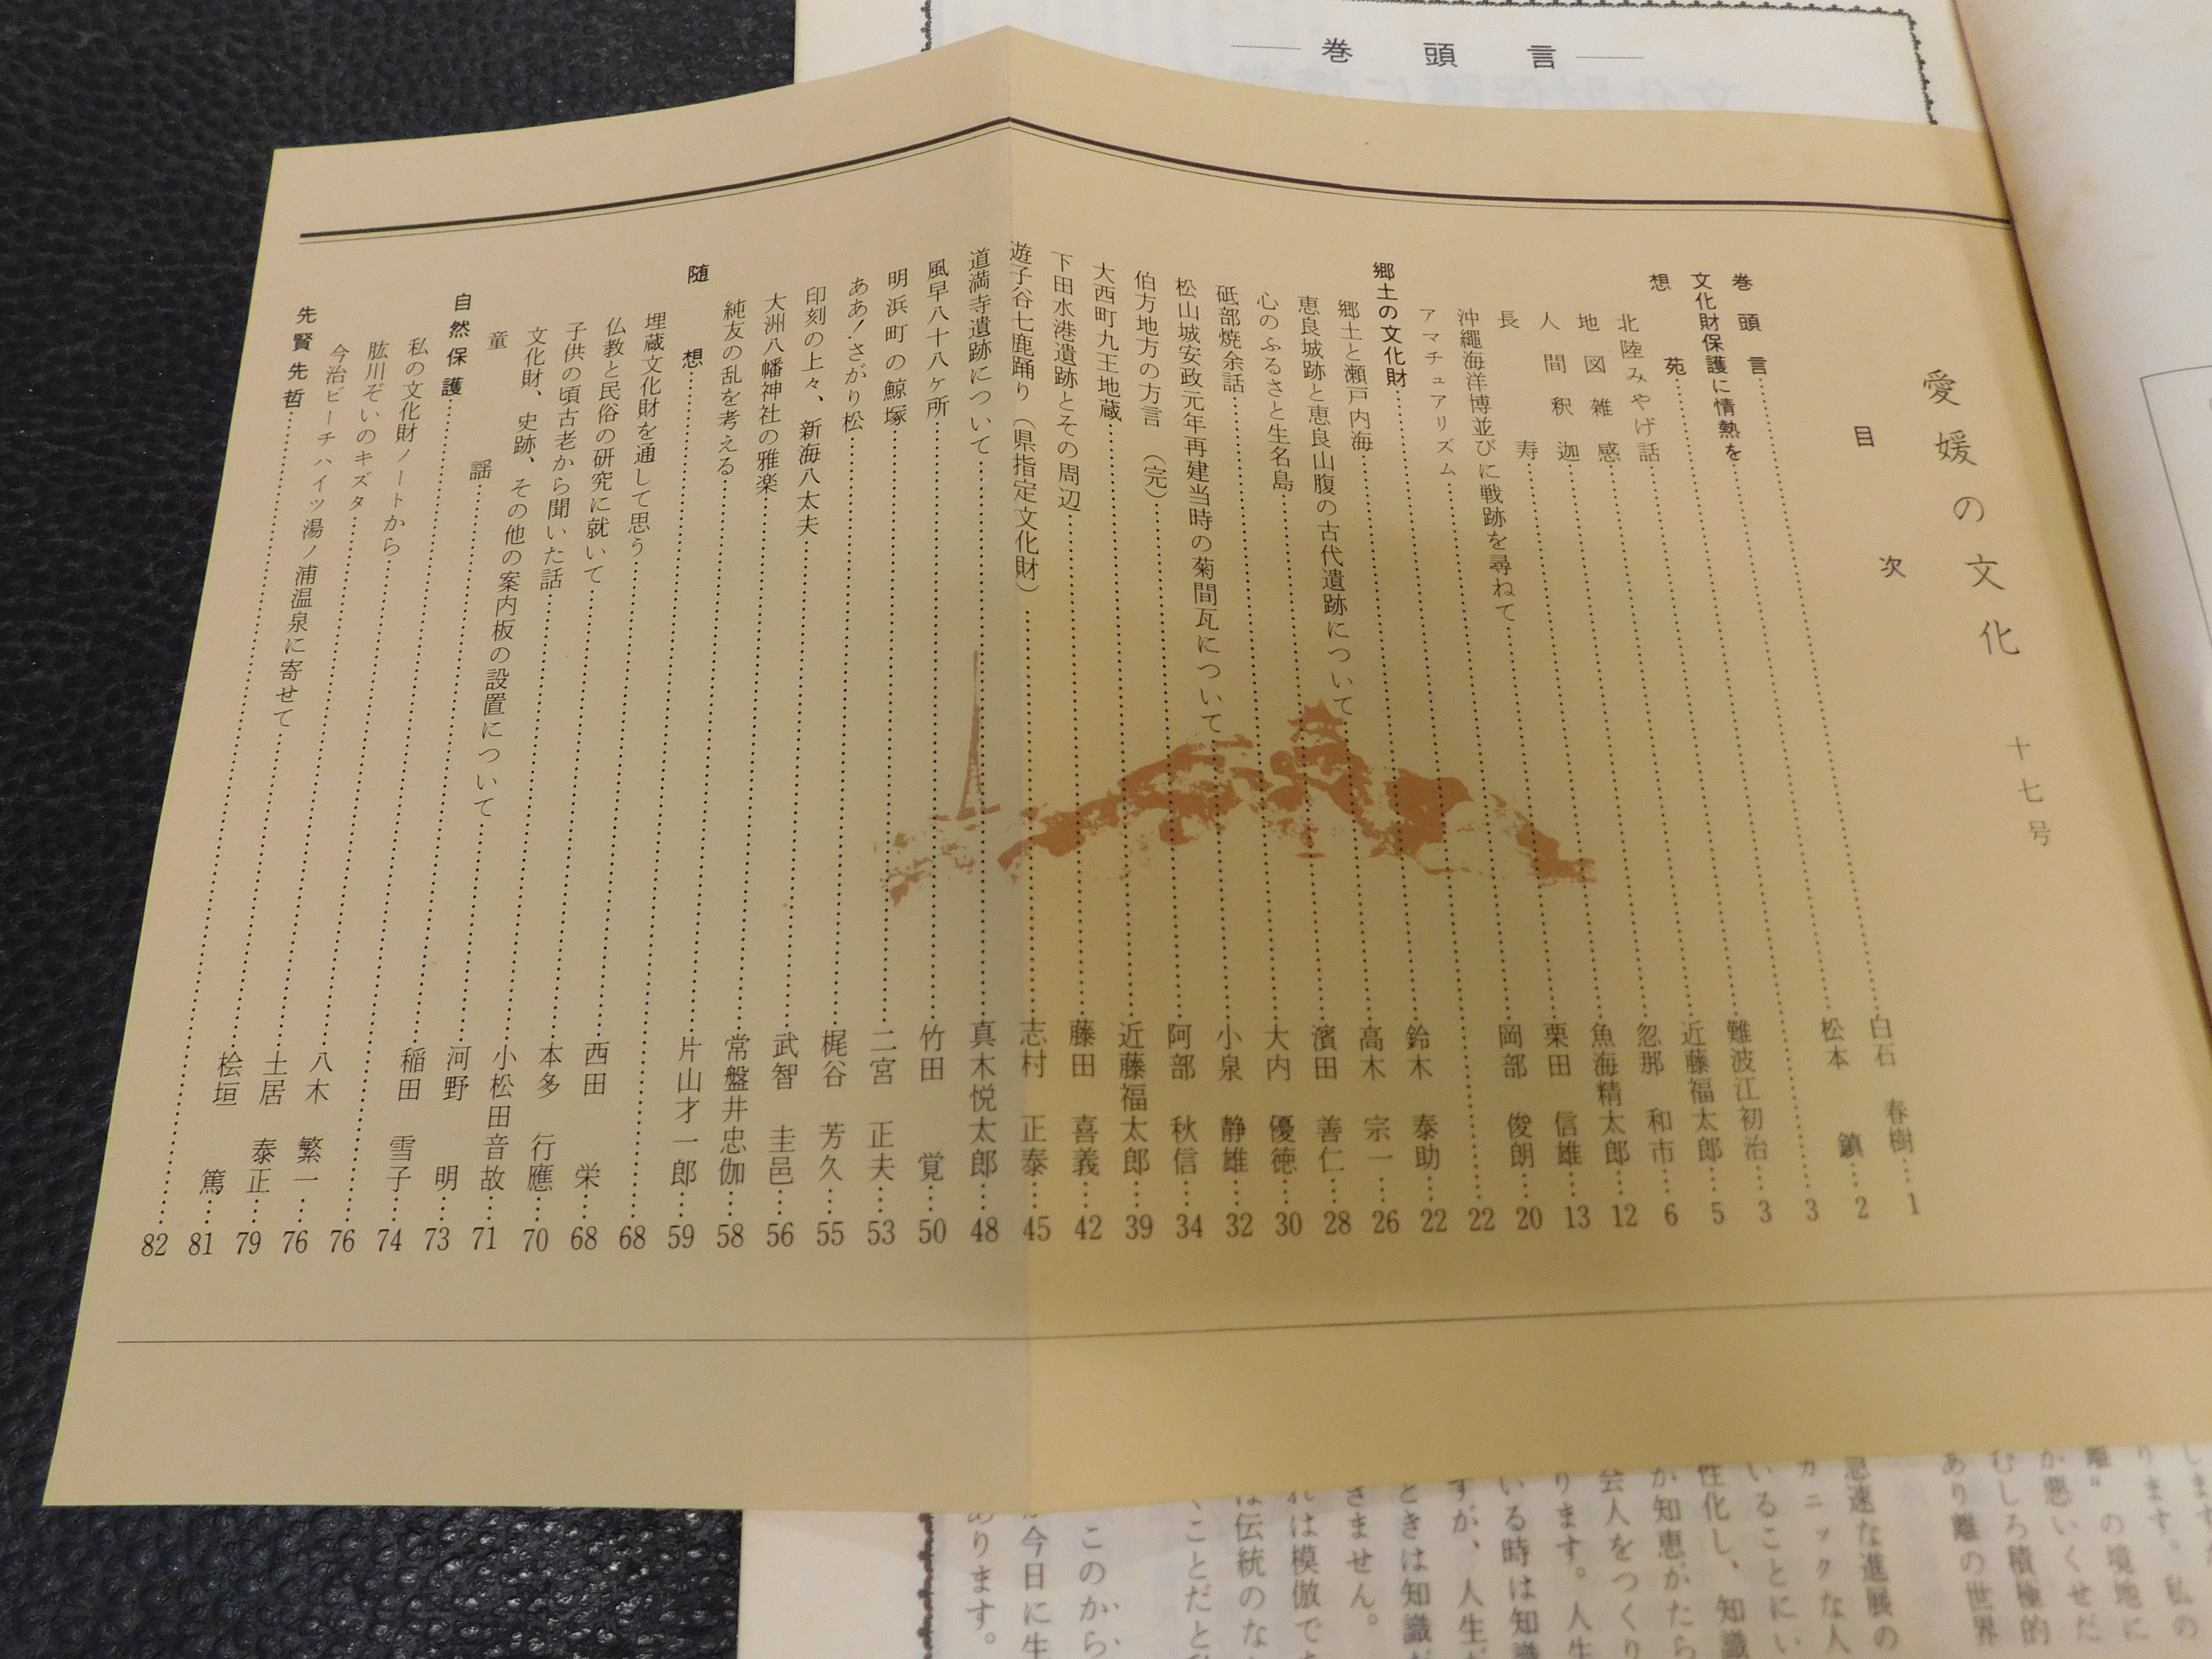 巻頭言
愛媛の文化 十七号
目次
巻頭言……白石 春樹…1
文化財保護に情熱を……松本 鎮…2
想苑……3
北陸みやげ話……難波江初治…3
地図雑感……近藤福太郎…5
人間釈迦……忽那 和市…6
長寿……魚海精太郎…12
沖縄海洋博並びに戦跡を尋ねて……栗田 信雄…13
アマチュアリズム……岡部 俊朗…20
郷土の文化財……22
郷土と瀬戸内海……鈴木 泰助…22
恵良城跡と恵良山腹の古代遺跡について……高木 宗一…26
心のふるさと生名島……濱田 善仁…28
砥部焼余話……大内 優徳…30
松山城安政元年再建当時の菊間瓦について……小泉 静雄…32
伯方地方の方言(完)……阿部 秋信…34
大西町九王地蔵……近藤福太郎…39
下田水港遺跡とその周辺……藤田 喜義…42
遊子谷七鹿踊り(県指定文化財)……志村 正泰…45
道満寺遺跡について……真木悦太郎…48
風早八十八ヶ所……竹田 覚…50
明浜町の鯨塚……二宮 正夫…53
ああ!さがり松……梶谷 芳久…55
印刻の上々、新海八太夫……武智 圭邑…56
大洲八幡神社の雅楽……常盤井忠伽…58
純友の乱を考える……片山才一郎…59
随想……68
埋蔵文化財を通して思う……西田 栄…68
仏教と民俗の研究に就いて……本多 行應…70
子供の頃古老から聞いた話……小松田音故…71
文化財、史跡、その他の案内板の設置について……河野 明…73
童謡……稲田 雪子…74
自然保護……76
私の文化財ノートから……八木 繁一…76
肱川ぞいのキズタ……土居 泰正…79
今治ビーチハイツ湯ノ浦温泉に寄せて……桧垣 篤…81
先賢先哲……82
ります。私の
離〟の境地に
か悪いくせだ
むしろ積極的
あり離の世界
急速な進展の
カニックな人
いることにい
性化し、知識
か知恵がたら
会人をつくり
ります。人生
いる時は知識
すが、人生
ときは知識
きません。
れは模倣で
は伝統のな
くことだと
このから、
今日に生
あります。